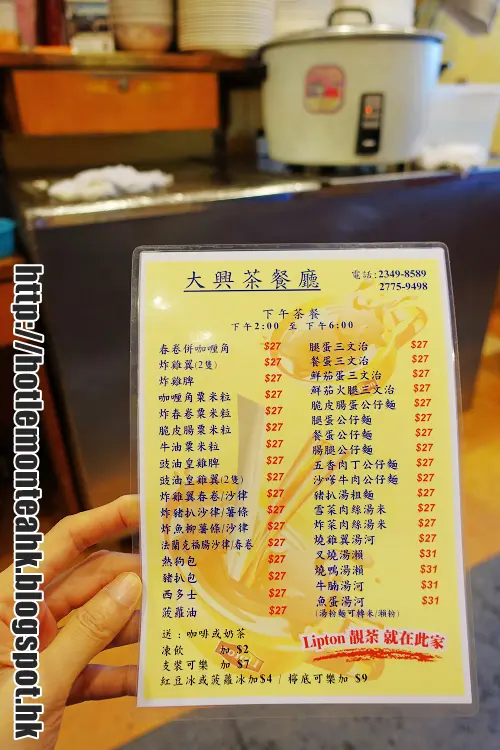 大興茶餐廳
電話:2349-8589
2775-9498
下午茶餐
下午2:00 至 下午6:00
春卷併咖喱角 $27
炸雞翼(2隻) $27
炸雞脾 $27
咖喱角粟米粒 $27
炸春卷粟米粒 $27
脆皮腸粟米粒 $27
牛油粟米粒 $27
豉油皇雞脾 $27
豉油皇雞翼(2隻) $27
炸雞翼春卷/沙律 $27
炸豬扒沙律/薯條 $27
炸魚柳薯條/沙律 $27
法蘭克福腸沙律/春卷 $27
熱狗包 $27
豬扒包 $27
西多士 $27
菠蘿油 $27
腿蛋三文治 $27
餐蛋三文治 $27
鮮茄蛋三文治 $27
鮮茄火腿三文治 $27
脆皮腸蛋公仔麵 $27
腿蛋公仔麵 $27
餐蛋公仔麵 $27
腸腿公仔麵 $27
五香肉丁公仔麵 $27
沙嗲牛肉公仔麵 $27
豬扒湯粗麵 $27
雪菜肉絲湯米 $27
炸菜肉絲湯米 $27
燒雞翼湯河 $27
叉燒湯瀨 $31
燒鴨湯瀨 $31
牛腩湯河 $31
魚蛋湯河 $31
(湯粉麵可轉米/瀨粉)
送:咖啡或奶茶
凍飲 加 $2
支裝可樂 加 $7
紅豆冰或菠蘿冰加$4 / 檸底可樂加 $9
Lipton 靚茶 就在此家
http://hotlemonteahk.blogspot.hk